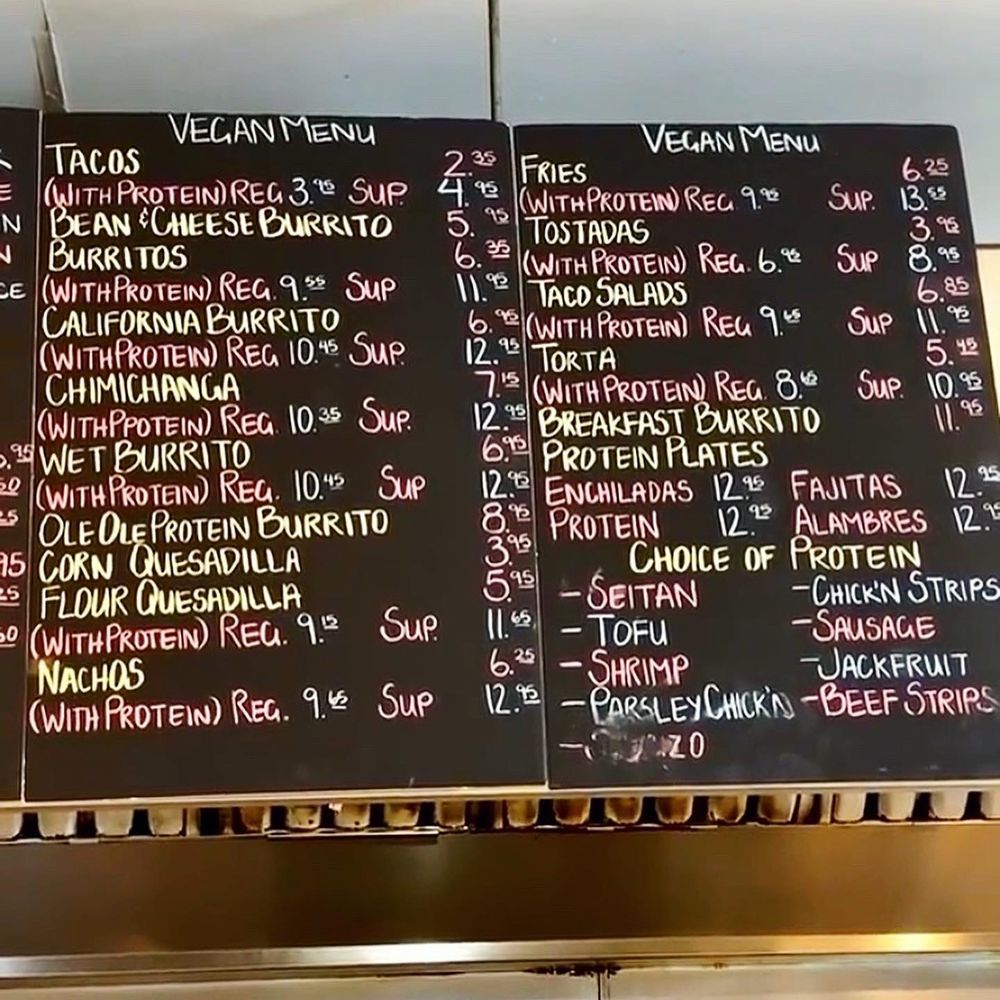 VEGAN MENU
TACOS 2.35
(WITH PROTEIN) REG 3.95 SUP. 4.95
BEAN & CHEESE BURRITO 5.95
BURRITOS 6.35
(WITH PROTEIN) REG. 9.55 SUP 11.95
CALIFORNIA BURRITO 6.95
(WITH PROTEIN) REG 10.45 SUP. 12.95
CHIMICHANGA 7.15
(WITH PROTEIN) REG. 10.35 SUP. 12.95
WET BURRITO 6.95
(WITH PROTEIN) REG. 10.45 SUP 12.95
OLE OLE PROTEIN BURRITO 8.95
CORN QUESADILLA 3.95
FLOUR QUESADILLA 5.95
(WITH PROTEIN) REG. 9.15 SUP. 11.65
NACHOS 6.25
(WITH PROTEIN) REG. 9.65 SUP 12.95
VEGAN MENU
FRIES 6.25
(WITH PROTEIN) REG 9.95 SUP. 13.55
TOSTADAS 3.95
(WITH PROTEIN) REG. 6.95 SUP 8.95
TACO SALADS 6.85
(WITH PROTEIN) REG 9.65 SUP 11.95
TORTA 5.45
(WITH PROTEIN) REG. SUP. 10.95
BREAKFAST BURRITO 11.95
PROTEIN PLATES
ENCHILADAS 12.95 FAJITAS 12.95
PROTEIN 12.95 ALAMBRES 12.95
CHOICE OF PROTEIN
- SEITAN - CHICK'N STRIPS
- TOFU - SAUSAGE
- SHRIMP - JACKFRUIT
- PARSLEY CHICK'N - BEEF STRIPS